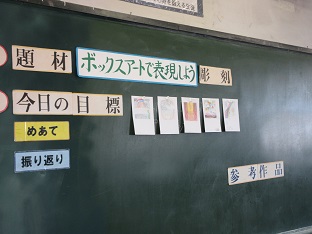 題材 ボックスアートで表現しよう 彫刻
今日の目標
めあて
振り返り
参考作品